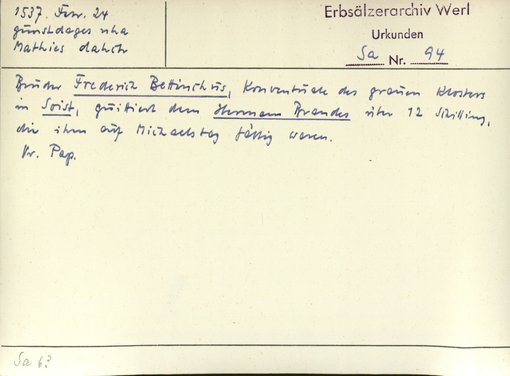 1537. Febr. 24
gunstdages nha
Mathies
Erbsälzerarchiv Werl
Urkunden
Sa Nr. 94
Bruder Frederich Bettinchus, Konventuale des grauen Klosters
in Soist, quittiert dem Hermann Brandes über 12 Schilling,
die ihm auf Michaelstag fällig waren.
Or. Pap.
Sa 63